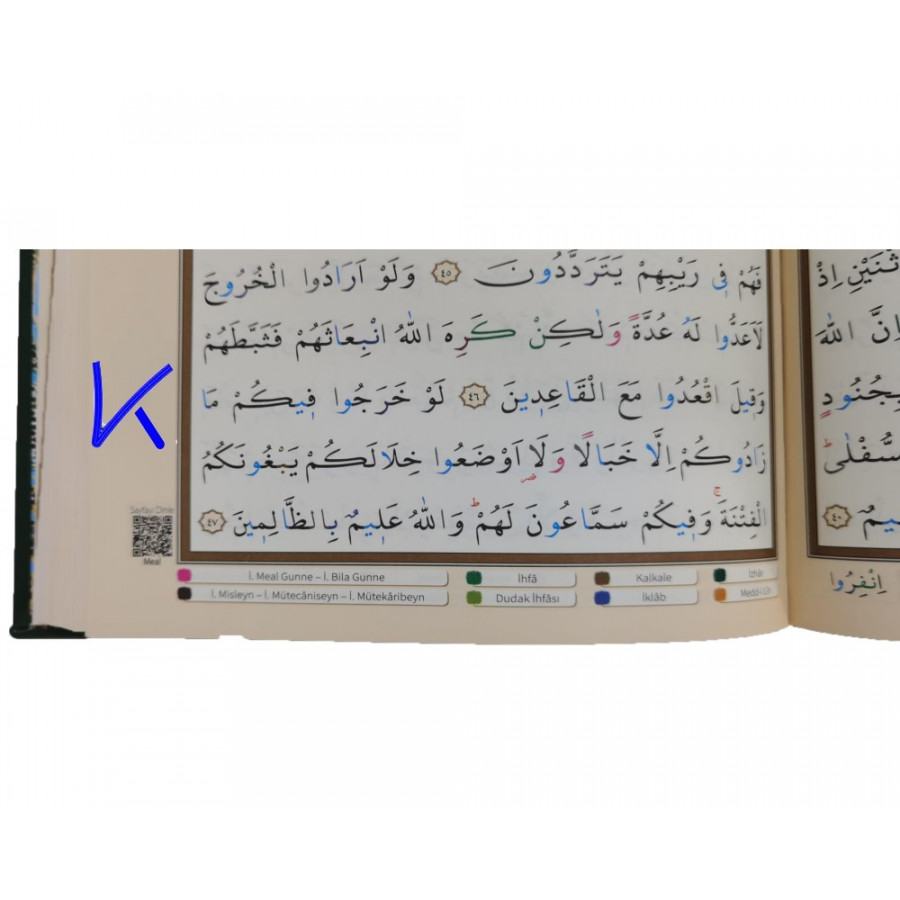 فَهُمْ فٖى رَيْبِهِمْ يَتَرَدَّدُونَ ﴿٤٥﴾ وَلَوْ اَرَادُوا الْخُرُوجَ
لَاَعَدُّوا لَهُ عُدَّةً وَلٰكِنْ كَرِهَ اللّٰهُ انْبِعَاثَهُمْ فَثَبَّطَهُمْ
وَقٖيلَ اقْعُدُوا مَعَ الْقَاعِدٖينَ ﴿٤٦﴾ لَوْ خَرَجُوا فٖيكُمْ مَا
زَادُوكُمْ اِلَّا خَبَالًا وَلَا اَوْضَعُوا خِلَالَكُمْ يَبْغُونَكُمُ
الْفِتْنَةَ وَفٖيكُمْ سَمَّاعُونَ لَهُمْ وَاللّٰهُ عَلٖيمٌ بِالظَّالِمٖينَ ﴿٤٧﴾
ثْنَيْنِ اِذْ
اِنَّ اللّٰهَ
بِجُنُودٍ
سُّفْلٰى
يمٌ ﴿٤٠﴾
اِنْفِرُوا
K
Sayfayı Dinle
Meal
İ. Meal Gunne – İ. Bila Gunne
İhfâ
Kalkale
İzhâr
İ. Misleyn – İ. Mütecâniseyn – İ. Mütekâribeyn
Dudak İhfâsı
İklâb